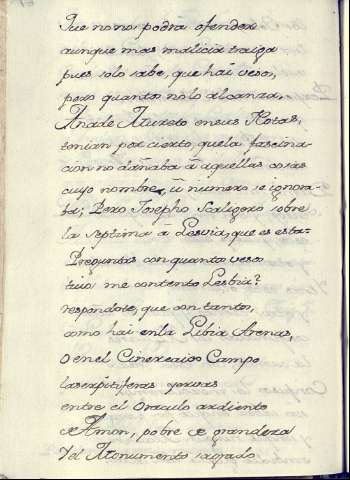 Que no nos podra ofender
aunque mas malicia traiga
pues solo sabe, que hai vesos,
pero quantos no lo alcanza,
Añade Mureto en sus Notas,
tenian por cierto, que la fascina-
cion no dañaba â aquellas cosas
cuyo nombre, û numero se ignora-
ba; Pero Josepho Scaligero sobre
la septima â Lesvia, que es esta-
Preguntas con quantos vesos
tuios me contento Lesbia?
respondote, que con tantos,
como hai en la Libia Arenas,
O en el Cinereaico Campo
laserpitiferas yervas
entre el Oraculo ardiente
de Amon, pobre de grandeza
Y el Monumento sagrado